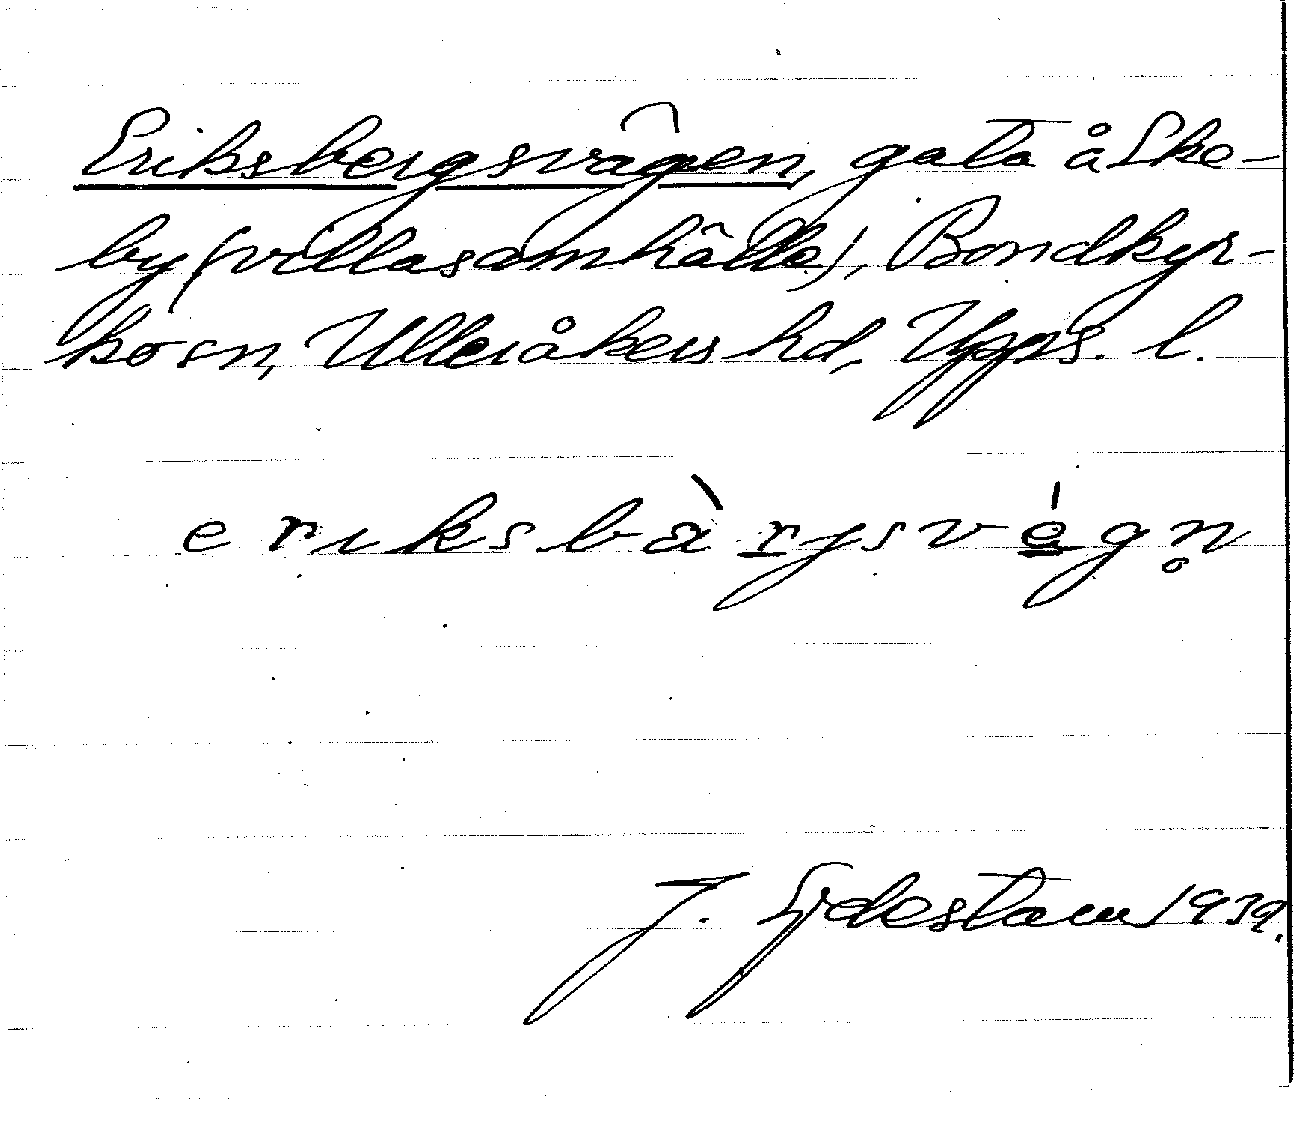 Eriksbergsvägen, gata å Eke-
by (villasamhälle), Bondkyr-
kosn, Ulleråkers hd, Upps. l.
erıksbàrjsvégn̥
J. Sjdestam 1939.